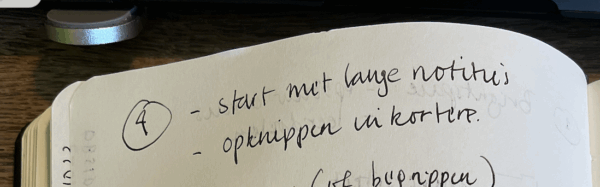 ④ - start met lange notities
- opknippen in kortere.
(of begrippen)